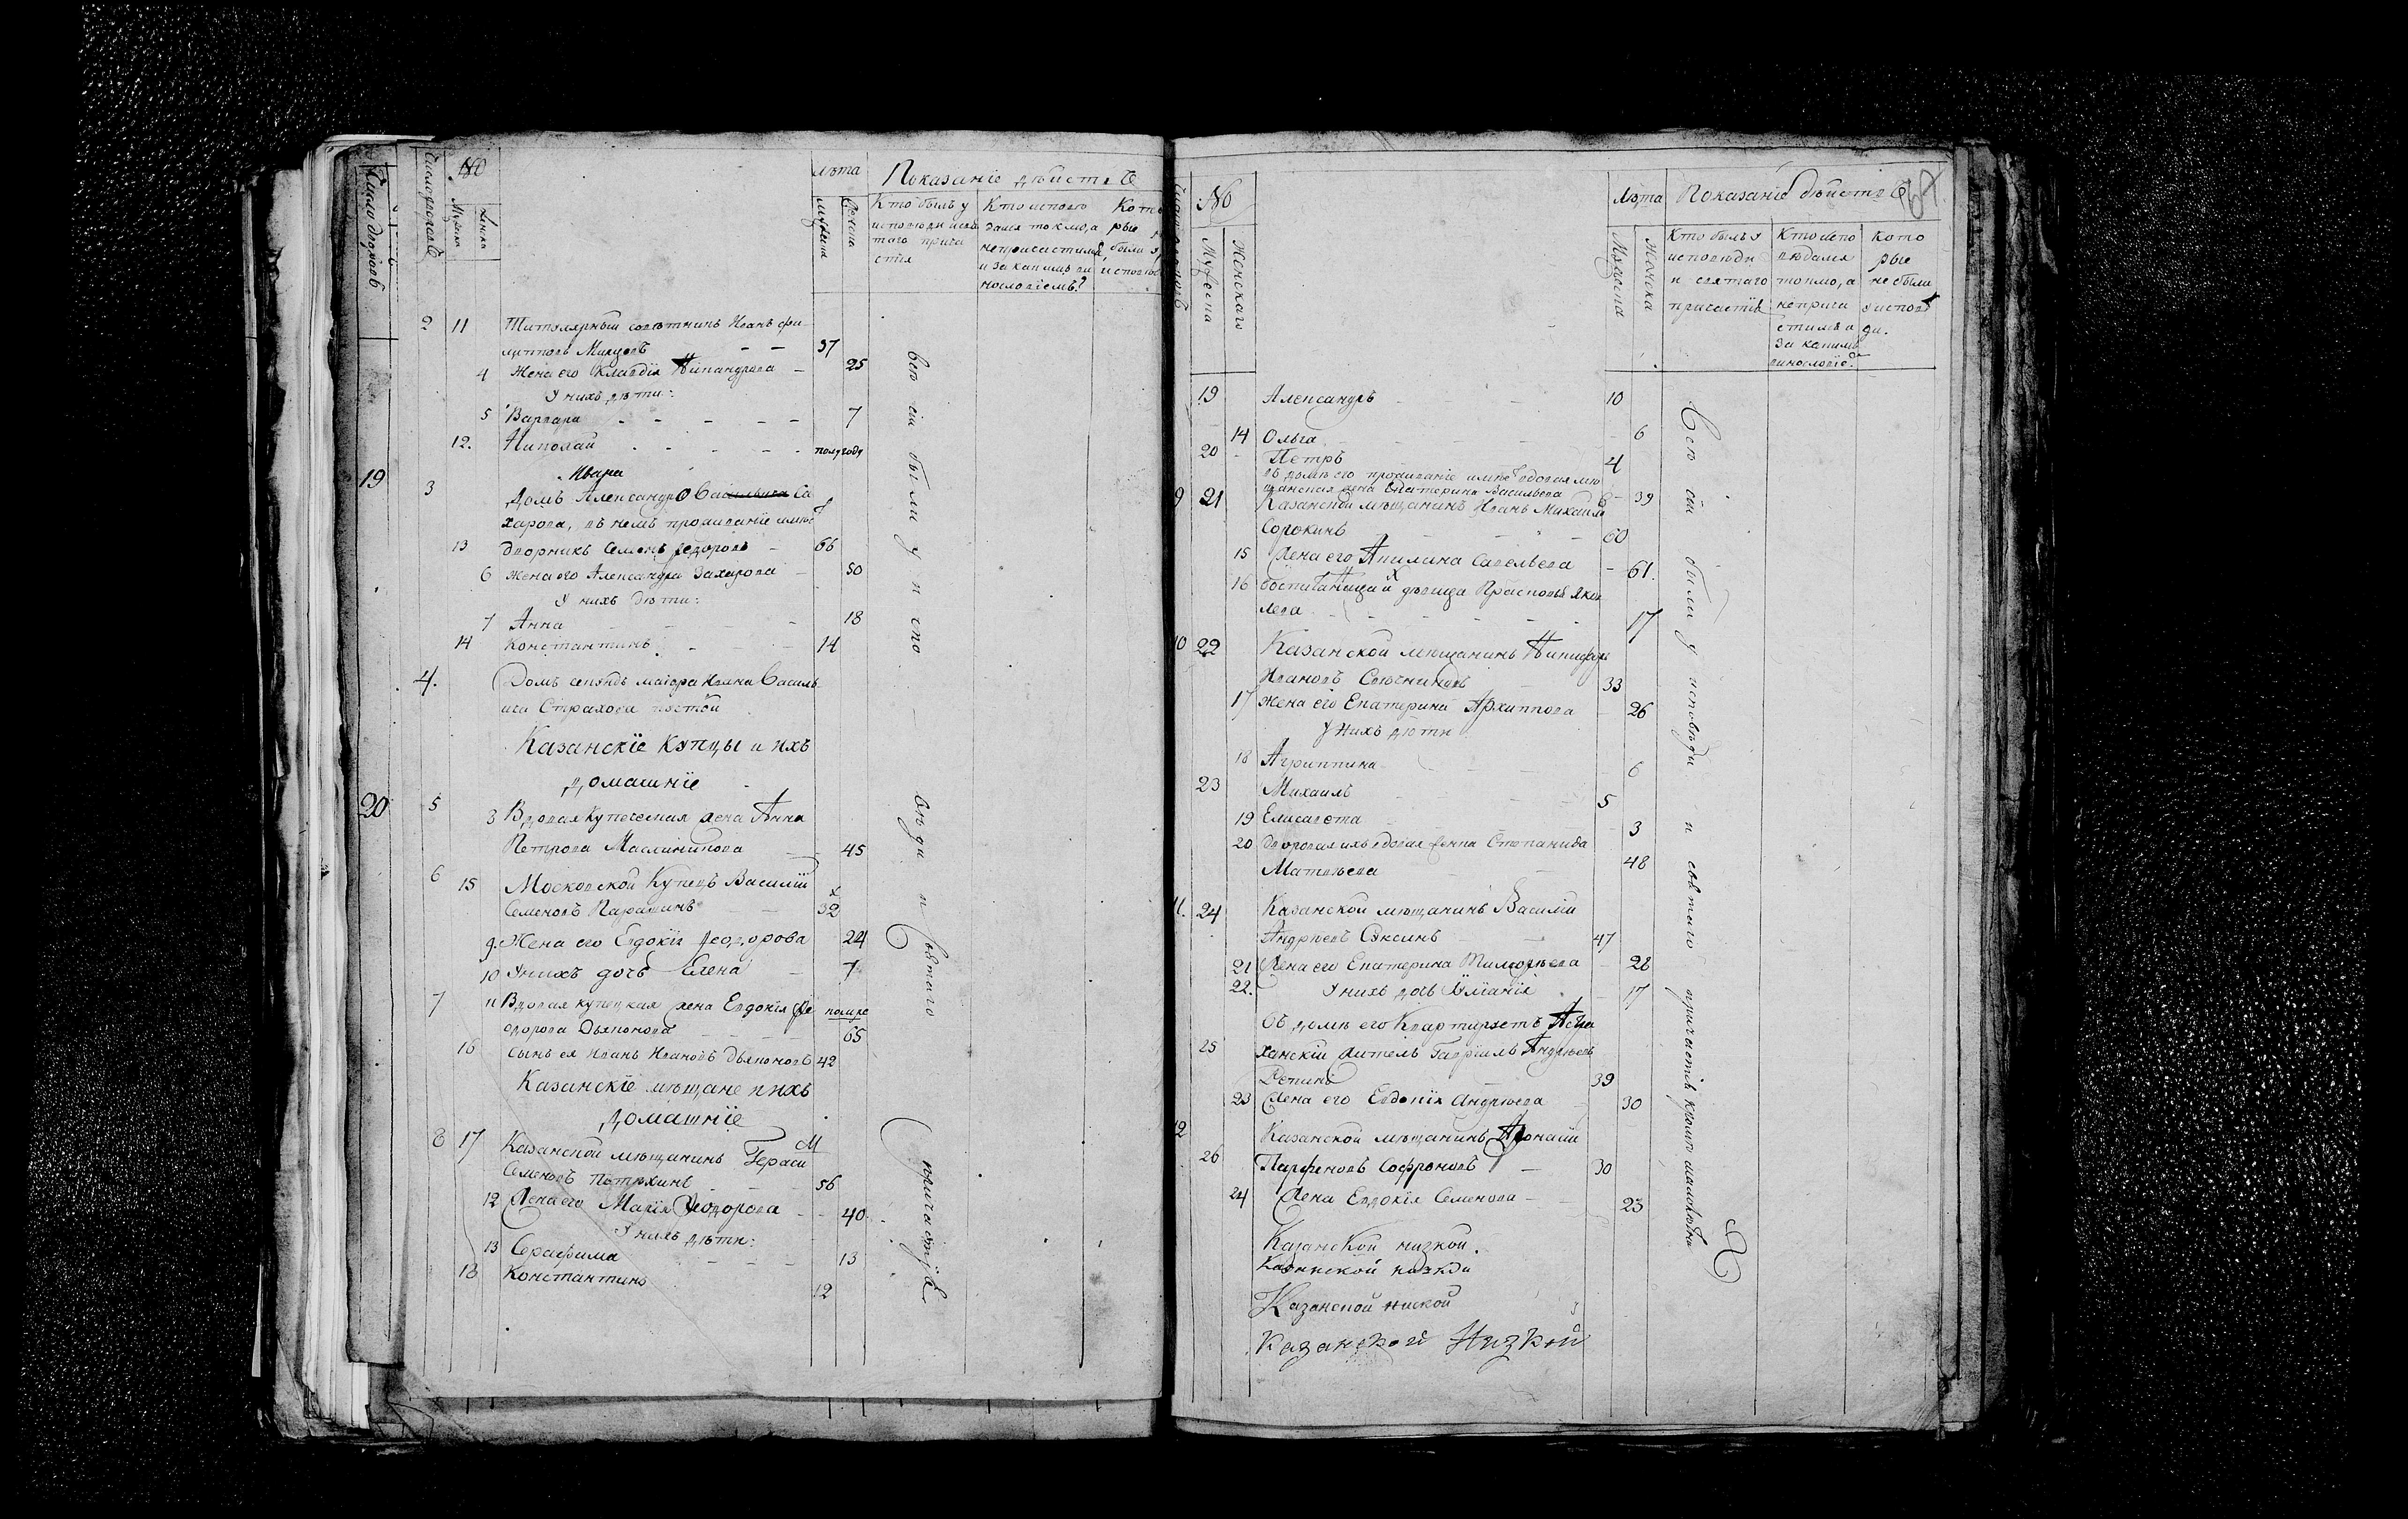 Число дворовъ
№
Мужска
Женска
лѣта
мужска
женска
Показаніе дѣйствѣ
Кто былъ у исповѣди и свѣтаго причастія
Кто исповѣдался токмо, а непричастился, и за какимъ винословіемъ?
2 11 Титулярный совѣтникъ Иванъ Фи
липповъ Микцовъ 37
4 Жена его Клавдія Никандрова 25
У нихъ дѣти:
5 Варвара 7
12. Николай полугоду
Ивана
19 3 Домъ Александр Васильича Са
харова, въ немъ проживаніе имѣ
13 Дворникъ Семенъ Федоровъ 66
6 Жена его Александра Захарова 50
У нихъ дѣти:
7 Анна 18
14 Константинъ 14
4. Домъ секундъ маіора Ивана Василь
ича Страхова пустой
Казанскіе купцы и ихъ
домашніе
20 5 3 Вдовая купеческая жена Анна
Петрова Маслиникова 45
6 15 Московской Купецъ Василій
Семеновъ Парашинъ 32
9. Жена его Евдокія Феодорова 24
10 У нихъ дочь Елена 7
7 11 Вдовая купецкая жена Евдокія Фе
одорова Дьяконова 65
16 Сынъ ея Иванъ Ивановъ Дьяконовъ 42
Казанскіе мѣщане и ихъ
домашніе
8 17 Казанской мѣщанинъ Герасим
Семеновъ Пѣтухинъ 56
12 Жена его Марія Феодорова 40
У нихъ дѣти:
13 Серафима 13
18 Константинъ 12
всѣ сіи были у испо
вѣди и святаго
причастія
№
Мужеска
Женскаго
Лѣта
Показаніе дѣйствѣ
Кто былъ у исповѣди и святаго причастія
Кто исповѣдался токмо, а непричастился и за какимъ винословіе
Которые не были у исповѣди.
19 Александръ 10
14 Ольга 6
20 Петръ 4
въ домѣ его проживаніе имѣе вдовая мѣ
щанская жена Екатерина Васильева 39
9 21 Казанской мѣщанинъ Иванъ Михаиловъ
Сорокинъ 60
15 Жена его Акилина Савельева 61.
16 воспитаница дѣвица Прасковья Яков
лева 17
10 22 Казанской мѣщанинъ Никифоръ
Ивановъ Свѣчниковъ 33
17 Жена его Екатерина Архиппова 26
У нихъ дѣти
18 Агриппина 6
23 Михаилъ 5
19 Елисавета 3
20 Дворовая ихъ вдовая женка Степанида
Матвѣева 48
11. 24 Казанской мѣщанинъ Василій
Андреевъ Сѫксинъ 47
21 Жена его Екатерина Тимофѣева 28
22. У нихъ дочь Юліанія 17
Въ домѣ его квартируетъ Астра
25 ханскій житель Гавріилъ Андреевъ
Репинъ 39
23 Жена его Евдокія Андреева 30
12 Казанской мѣщанинъ Афонасій
26 Парфеновъ Софроновъ 30
24 Жена Евдокія Семенова 23
Казанской низкой.
Казанской низкои
Казанской ниской
Казанской Низкой
Всѣ сіи были у исповѣди и свѣтаго причастія кромѣ малолѣтн